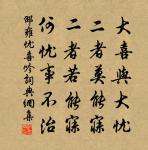 大喜與大忧
二者莫能寐
二者若能寐
何忧事不治
邵雍忧喜吟詞典網集